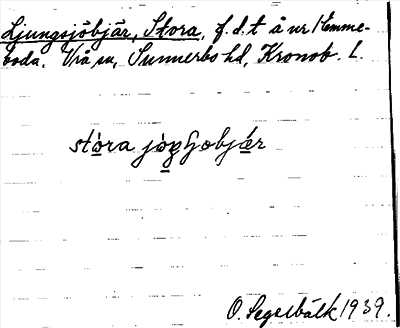 Ljungsjöbjär, Stora, f.d.t å nr Hemme-
boda, Vrå sn, Sunnerbo hd, Kronob. L.
stora
O. Segelbälk 1939.